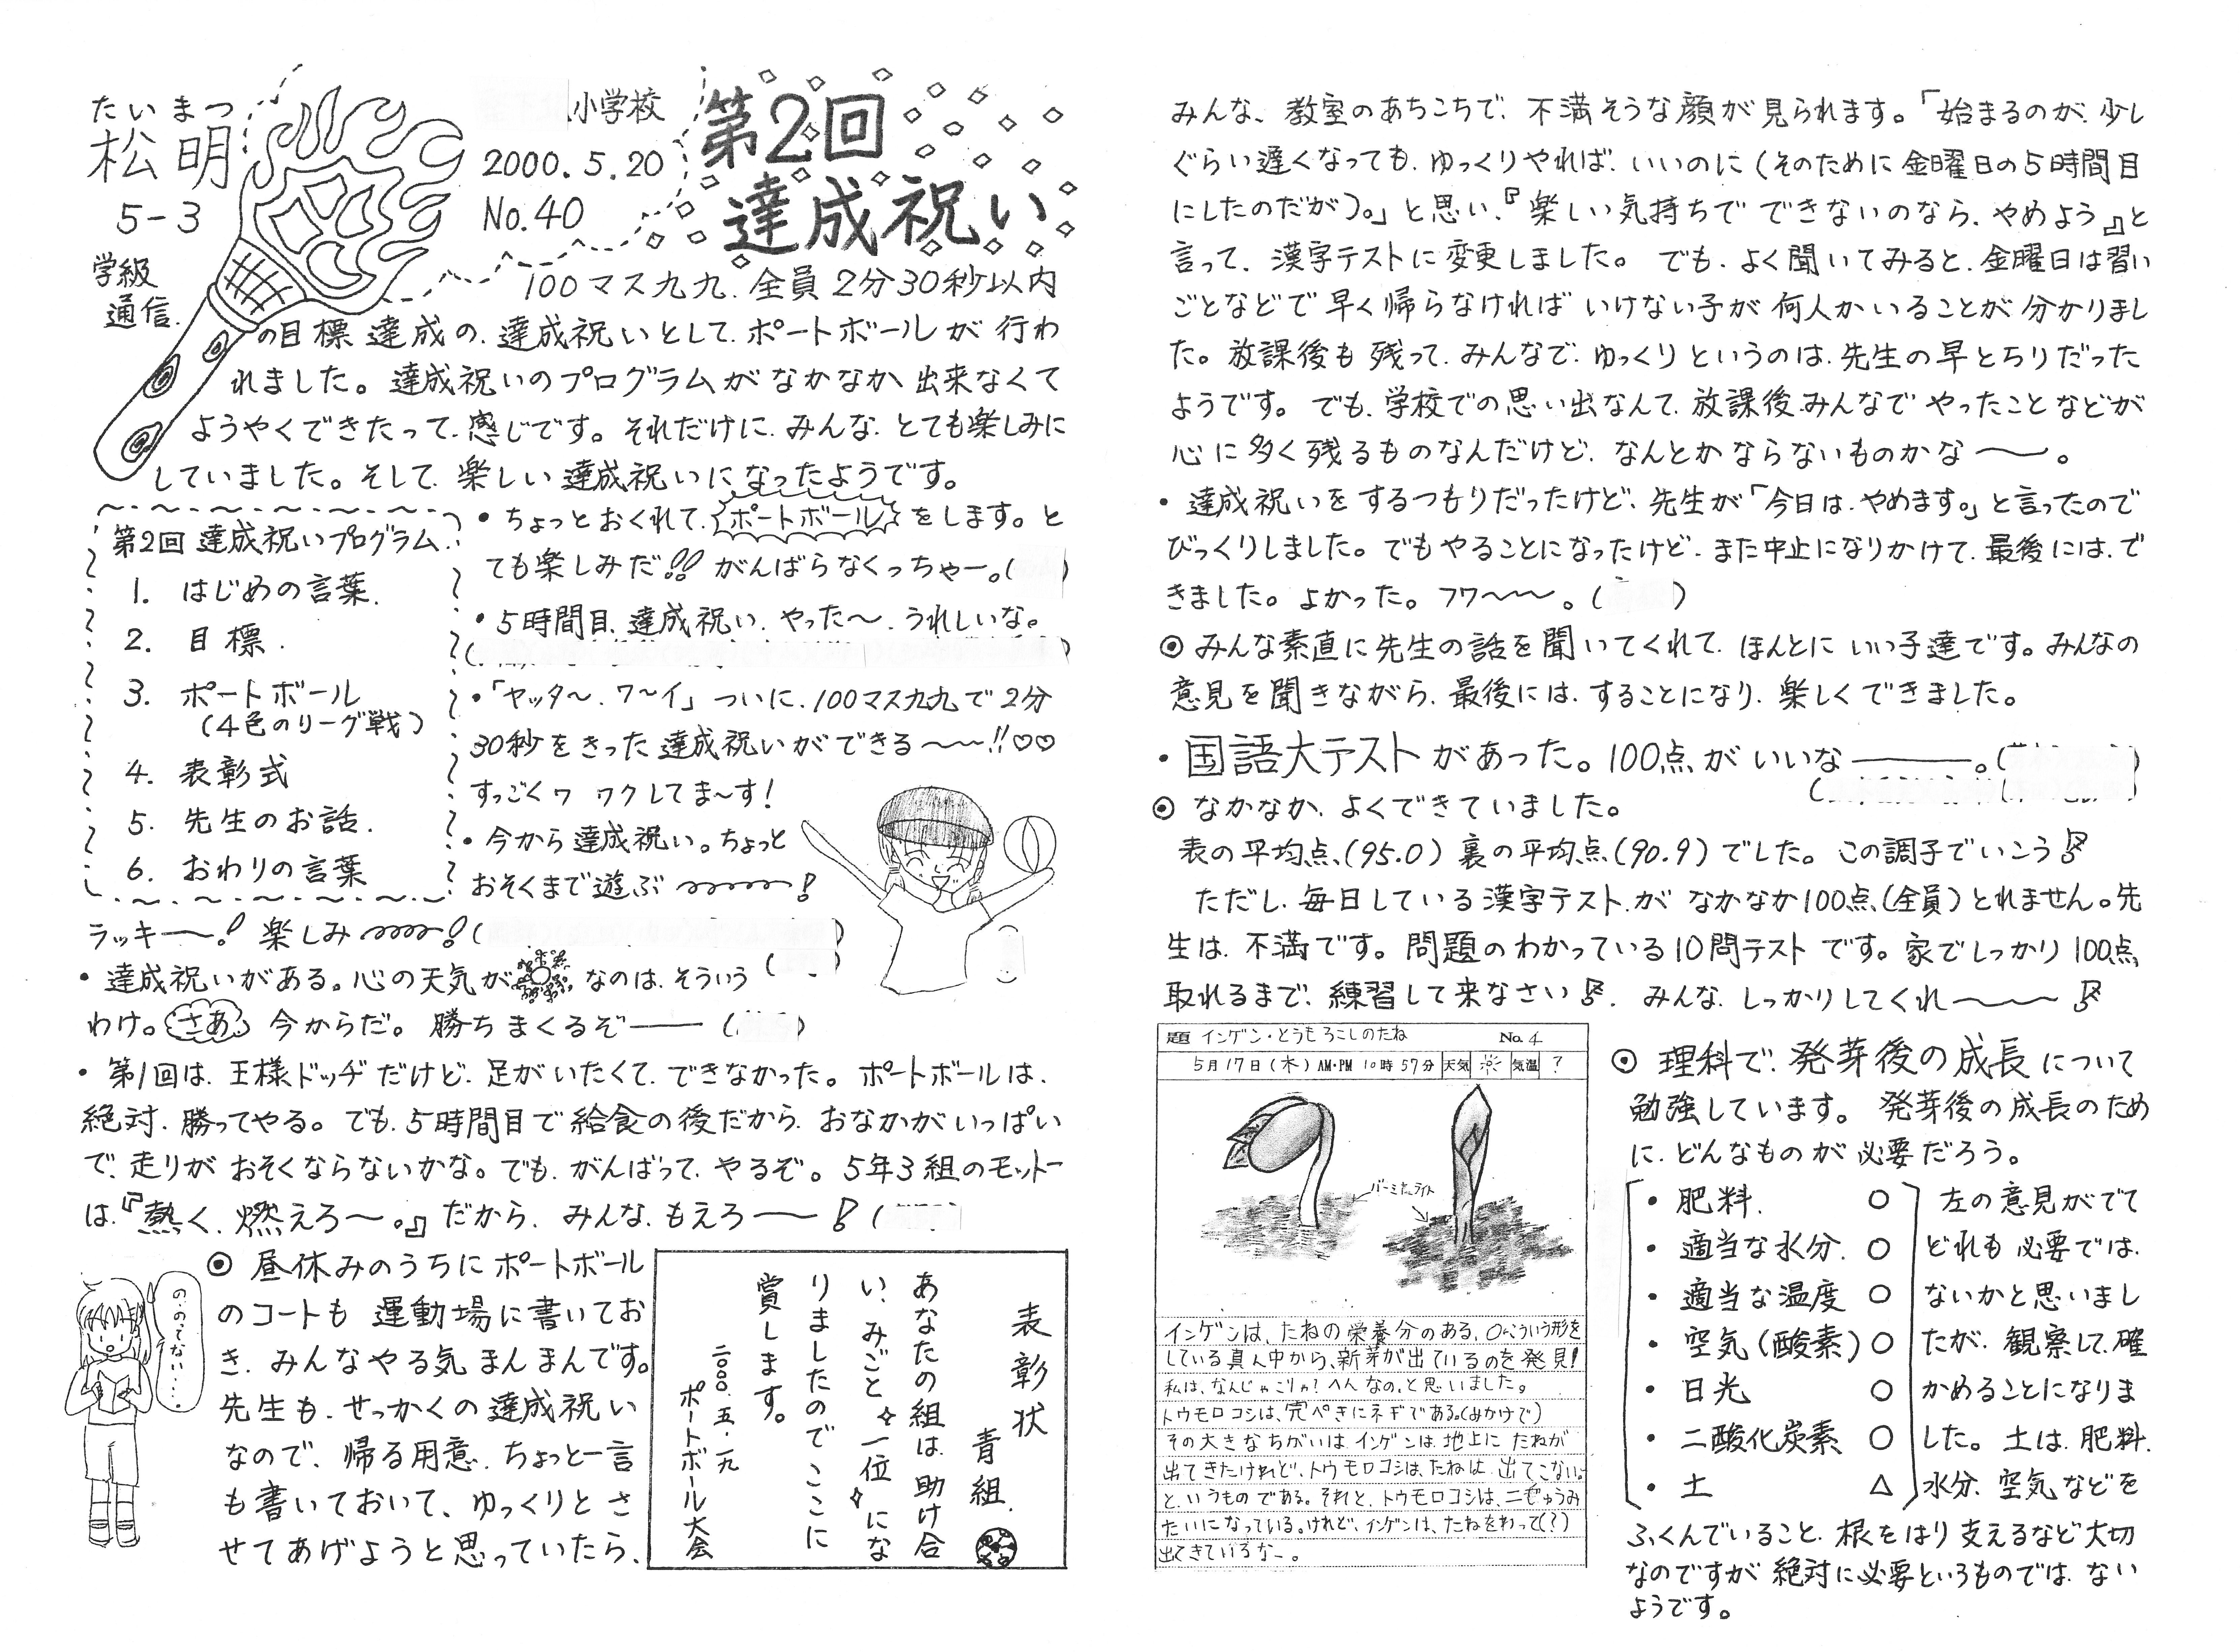 たいまつ
松明
5-3
学級
通信.
小学校
2000.5.20
No.40
第2回
達成祝い
100マス九九、全員2分30秒以内
の目標達成の、達成祝いとして、ポートボールが行わ
れました。達成祝いのプログラムがなかなか出来なくて
ようやくできたって、感じです。それだけに、みんな、とても楽しみに
していました。そして、楽しい達成祝いになったようです。
第2回 達成祝いプログラム
1. はじめの言葉.
2. 目標.
3. ポートボール
(4色のリーグ戦)
4. 表彰式
5. 先生のお話.
6. おわりの言葉
・ちょっとおくれて、ポートボールをします。と
ても楽しみだ!! がんばらなくっちゃー。( )
・5時間目、達成祝い、やった〜、うれしいな。
( )
・「ヤッタ〜、ワ〜イ」ついに、100マス九九で2分
30秒をきった達成祝いができる〜〜!!♡♡
すっごくワ ワクしてま〜す!
・今から達成祝い。ちょっと
おそくまで遊ぶ〜〜〜!
ラッキ〜〜! 楽しみ〜〜〜!( )
・達成祝いがある。心の天気が なのは、そういう( )
わけ。さあ、今からだ。勝ちまくるぞ── ( )
・第1回は、王様ドッヂだけど、足がいたくて、できなかった。ポートボールは、
絶対、勝ってやる。でも、5時間目で給食の後だから、おなかがいっぱい
で、走りがおそくならないかな。でも、がんばって、やるぞ。5年3組のモットー
は、『熱く、燃えろ〜。』だから、みんな、もえろ──!( )
の、のってない・・・・
◎ 昼休みのうちにポートボール
のコートも運動場に書いてお
き、みんなやる気まんまんです。
先生も、せっかくの達成祝い
なので、帰る用意、ちょっと一言
も書いておいて、ゆっくりとさ
せてあげようと思っていたら、
表彰状
青組.
あなたの組は、助け合
い、みごと✧一位✧にな
りましたのでここに
賞します。
二〇〇〇.五.一九
ポートボール大会
みんな、教室のあちこちで、不満そうな顔が見られます。「始まるのが、少し
ぐらい遅くなっても、ゆっくりやれば、いいのに(そのために金曜日の5時間目
にしたのだが)。」と思い、『楽しい気持ちでできないのなら、やめよう』と
言って、漢字テストに変更しました。でも、よく聞いてみると、金曜日は習い
ごとなどで早く帰らなければいけない子が何人かいることが分かりまし
た。放課後も残って、みんなで、ゆっくりというのは、先生の早とちりだった
ようです。でも、学校での思い出なんて、放課後、みんなでやったことなどが
心に多く残るものなんだけど、なんとかならないものかな〜〜。
・達成祝いをするつもりだったけど、先生が「今日は、やめます。」と言ったので
びっくりしました。でもやることになったけど、また中止になりかけて、最後には、で
きました。よかった。フワ〜〜。( )
◎みんな素直に先生の話を聞いてくれて、ほんとにいい子達です。みんなの
意見を聞きながら、最後には、することになり、楽しくできました。
・国語大テストがあった。100点がいいな───。( )
( )
◎ なかなか、よくできていました。
表の平均点(95.0)裏の平均点(90.9)でした。この調子でいこう!
ただし、毎日している漢字テストがなかなか100点(全員)とれません。先
生は、不満です。問題のわかっている10問テストです。家でしっかり100点
取れるまで、練習して来なさい!. みんな、しっかりしてくれ〜〜〜!
題 インゲン・とうもろこしのたね No.4
5月17日(木)AM・PM 10時57分 天気 気温 ?
バーミキュライト
インゲンは、たねの栄養分のある、〇こういう形を
している真ん中から、新芽が出ているのを発見!
私は、なんじゃこりゃ?へんなの。と思いました。
トウモロコシは、完ぺきにネギである。(みかけで)
その大きなちがいは、インゲンは、地上にたねが
出てきたけれど、トウモロコシは、たねは、出てこない。
というものである。それと、トウモロコシは、二じゅうみ
たいになっている。けれど、インゲンは、たねをわって(?)
出てきているなー。
◎ 理科で、発芽後の成長について
勉強しています。発芽後の成長のため
に、どんなものが必要だろう。
・肥料. ○
・適当な水分. ○
・適当な温度 ○
・空気(酸素) ○
・日光 ○
・二酸化炭素 ○
・土 △
左の意見がでて
どれも必要では、
ないかと思いまし
たが、観察して、確
かめることになりま
した。土は、肥料、
水分、空気などを
ふくんでいること、根をはり支えるなど大切
なのですが絶対に必要というものでは、ない
ようです。